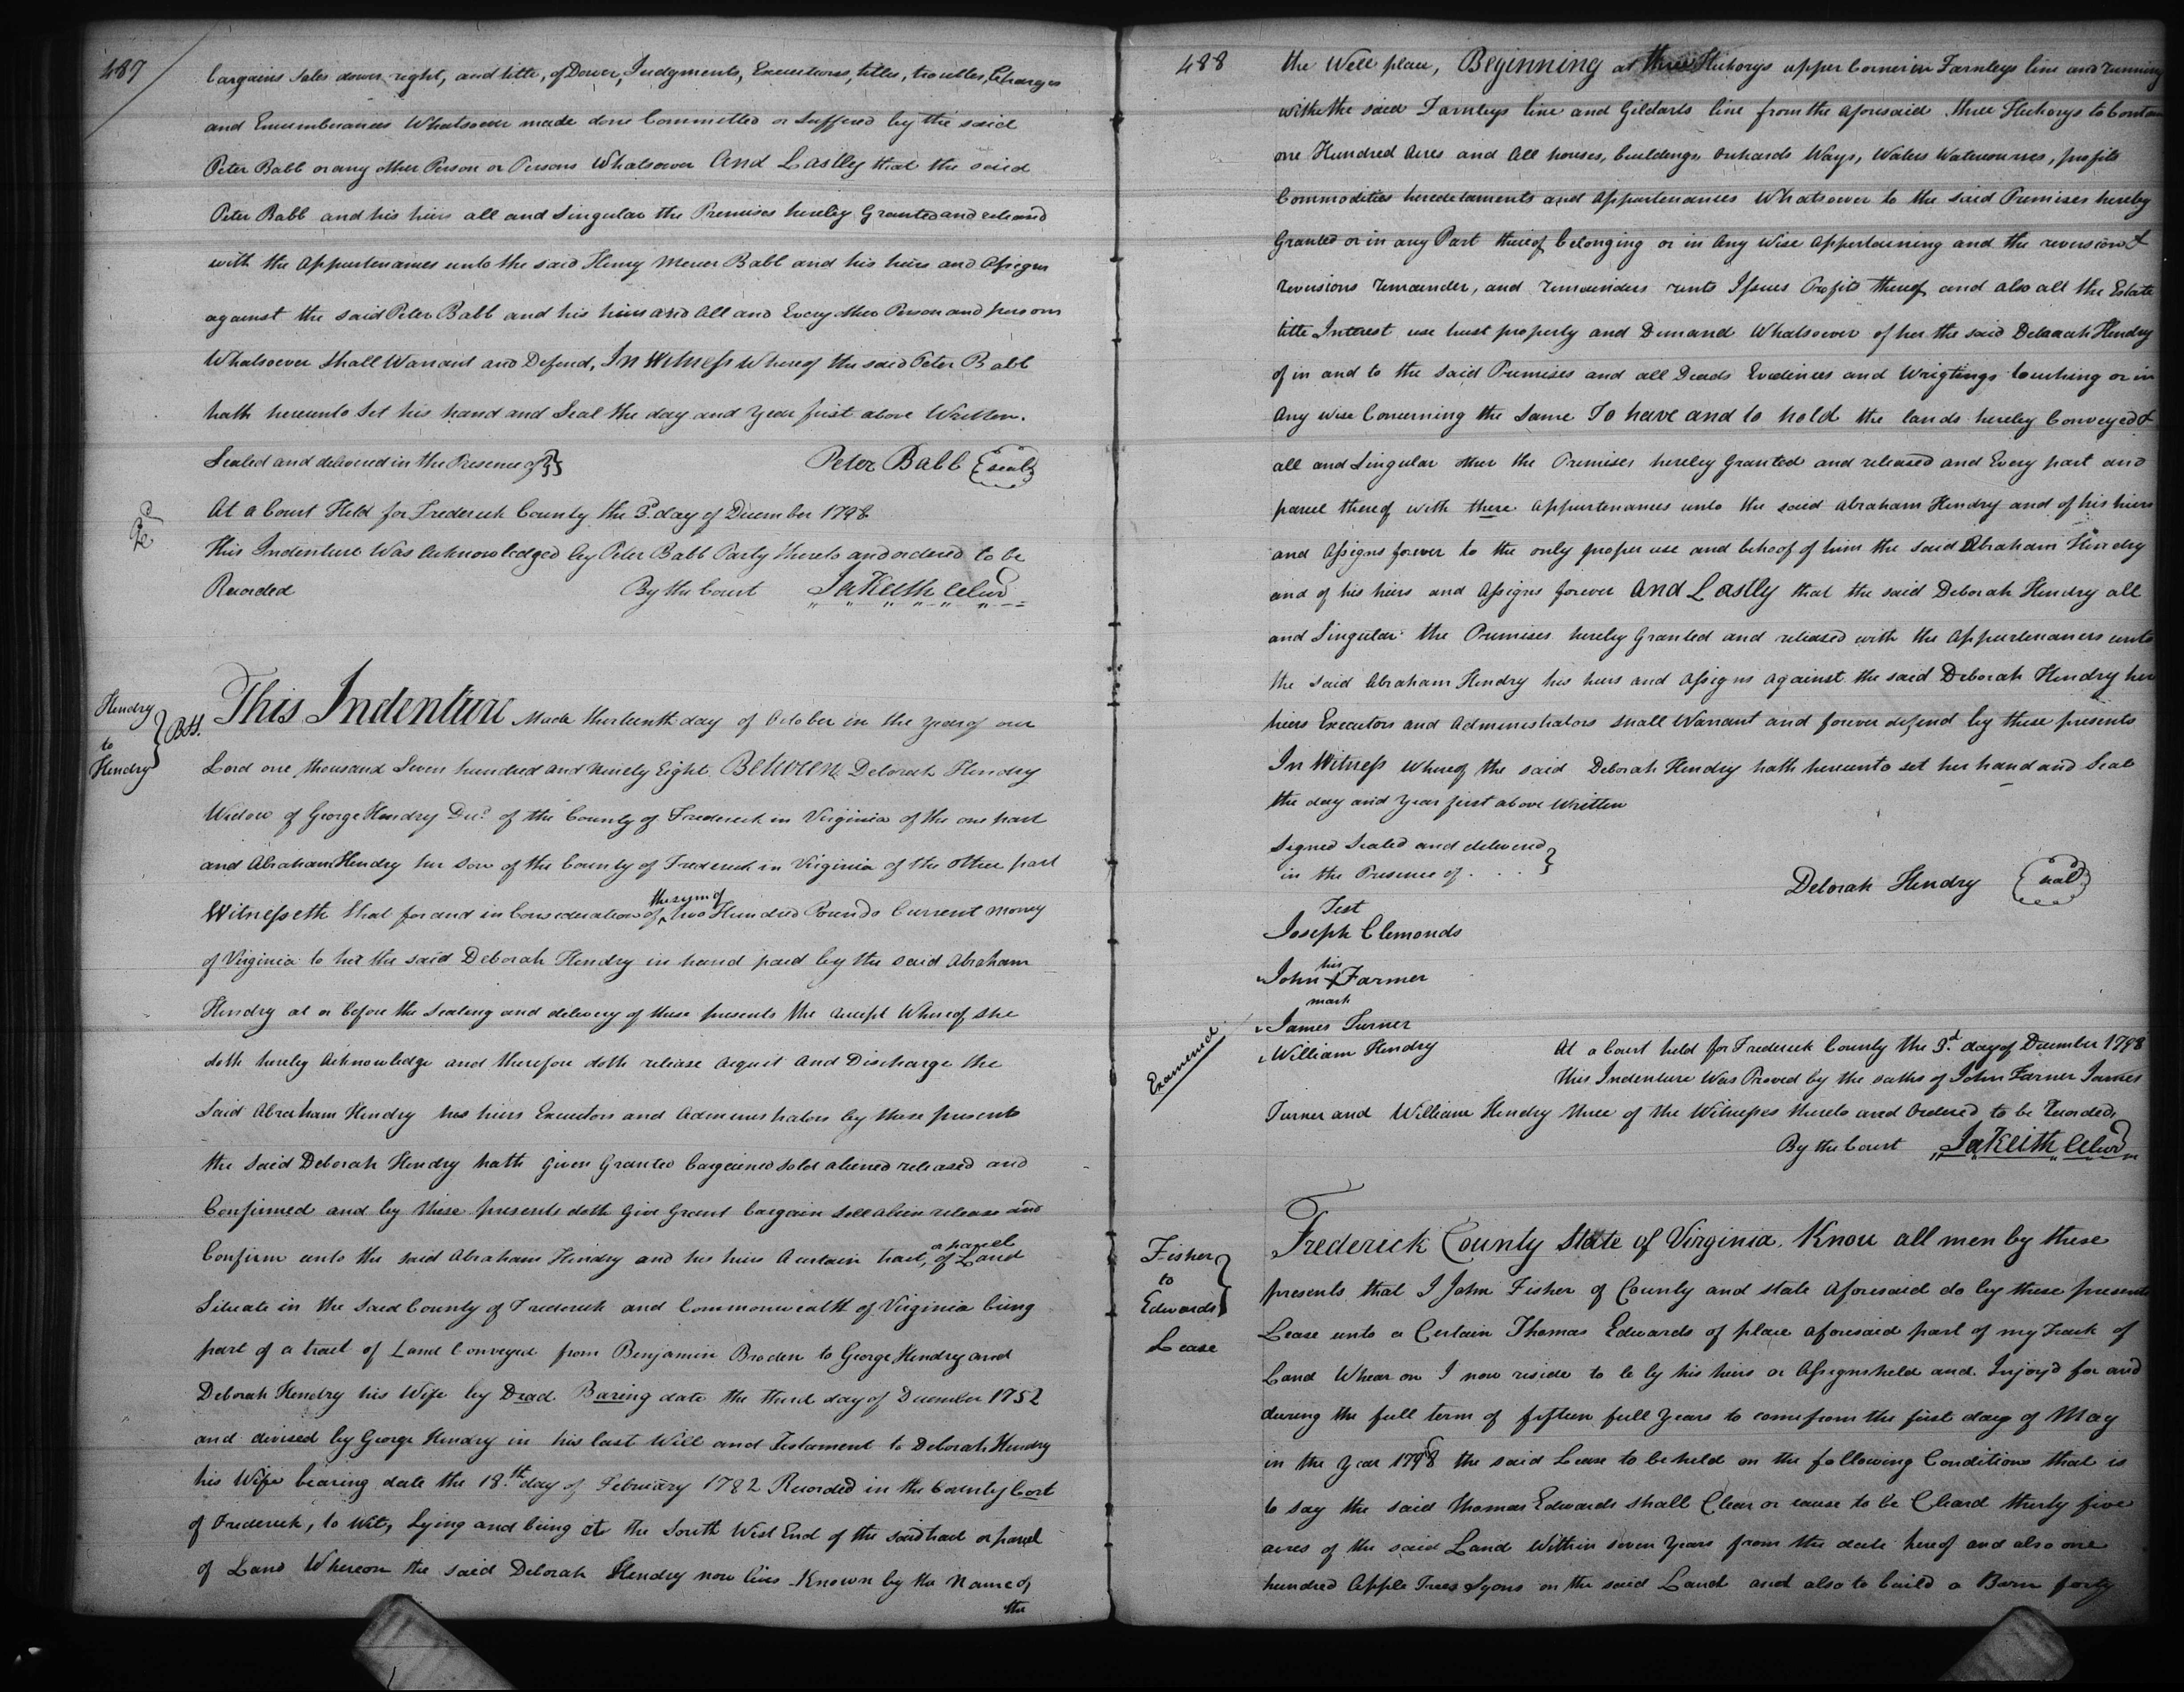 487
bargains sales dower right, and title, of Dower, Judgments, Executions, titles, troubles, Charges
and Encumberances Whatsoever made done Committed or Suffered by the said
Peter Babb or any other Person or Persons Whatsoever And Lastly that the said
Peter Babb and his hiers all and Singular the Premises hereby Granted and released
with the Appurtenances unto the said Henry Mercer Babb and his heirs and Assigns
against the said Peter Babb and his hiers and All and Every other Person and persons
Whatsoever Shall Warrant and Defend, In Witness Whereof the said Peter Babb
hath hereunto Set his hand and Seal the day and Year first above Written.
Sealed and delivered in the Presence of
Peter Babb (seal)
At a Court Held for Frederick County the 3d. day of December 1798
This Indenture Was Acknowledged by Peter Babb Party thereto and ordered to be
Recorded By the Court Ja Keith Clerk
Hendry
to
Hendry
B&S.
This Indenture Made thirteenth day of October in the year of our
Lord one thousand Seven hundred and Ninety Eight. Between Deborah Hendry
Widow of George Hendry Decd. of the County of Frederick in Virginia of the one part
and Abraham Hendry her Son of the County of Frederick in Virginia of the Other part
Witnesseth that for and in Consideration of ^ the sum of two Hundred Pounds Current money
of Virginia to her the said Deborah Hendry in hand paid by the said Abraham
Hendry at or before the Sealing and delivery of these presents the receipt Whereof She
doth hereby Acknowledge and therefore doth release Acquit and Discharge the
Said Abraham Hendry his hiers Executors and Administrators by these presents
the Said Deborah Hendry hath Given Granted bargained Sold aliened released and
Confirmed and by these presents doth Give Grant bargain Sell alien release and
Confirm unto the said Abraham Hendry and his hiers A certain tract, a parcel of Land
Situate in the Said County of Frederick and Commonwealth of Virginia being
part of a tract of Land Conveyed from Benjamin Broden to George Hendry and
Deborah Hendry his Wife by Dead Baring date the third day of December 1752
and divised by George Hendry in his last Will and Testament to Deborah Hendry
his Wife bearing date the 18th. day of February 1782 Recorded in the County Cort
of Frederick, to Wit, Lying and being at the South West End of the said tract or parcel
of Land Whereon the said Deborah Hendry now lives Known by the Name of
the
488
the Well place, Beginning at three Hickorys upper Corner in Farnleys line and running
withe the said Farnleys line and Gildarts line from the aforesaid three Hickorys to Contain
one Hundred Acres and All houses, buildings Orchards Ways, Waters Watercourses, profits
Commodities hereditaments and Appurtenances Whatsoever to the said Premises hereby
Granted or in any Part thereof belonging or in Any Wise Appertaining and the reversion &
reversions remainder, and remainders rents Issues Profits thereof and also all the Estate
title Interest use trust property and Demand Whatsoever of her the said Deborah Hendry
of in and to the said Premises and all Deads Evedences and Wrigtings touching or in
Any wise Concerning the Same To have and to hold the lands hereby Conveyed &
all and Singular other the Premises hereby Granted and released and Every part and
parcel thereof with there Appurtenances unto the said Abraham Hendry and of his hiers
and Assigns forever to the only proper use and behoof of him the said Abraham Hendry
and of his hiers and Assigns forever And Lastly that the said Deborah Hendry all
and Singular the Premises hereby Granted and released with the Appurtenances unto
the said Abraham Hendry his heirs and Assigns against the said Deborah Hendry her
hiers Executors and Administrators shall Warrant and forever defend by these presents
In Witness Whereof the said Deborah Hendry hath hereunto set her hand and Seal
the day and Year first above Written
Signed Sealed and delivered
in the Presence of . . .
Deborah Hendry (seal)
Test
Joseph Clemonds
his
John X Farmer
mark
James Turner
William Hendry
Examined
At a Court held for Frederick County the 3d. day of December 1798
This Indenture Was Proved by the oaths of John Farmer James
Turner and William Hendry three of the Witnesses thereto and Ordered to be Recorded.
By the Court Ja Keith Clerk
Fisher
to
Edwards
Lease
Frederick County State of Virginia. Know all men by these
presents that I John Fisher of County and state aforesaid do by these presents
Lease unto a Certain Thomas Edwards of place aforesaid part of my Track of
Land Whear on I now reside to be by his hiers or Assigns held and Injoyd for and
during the full term of fifteen full years to come from the first day of May
in the year 1798 the said Lease to be held on the following Conditions that is
to say the said Thomas Edwards shall Clear or cause to be Cleard thirty five
acres of the said Land Within seven Years from the date hereof and also one
hundred Apple Trees Syons on the said Land and also to build a Barn forty